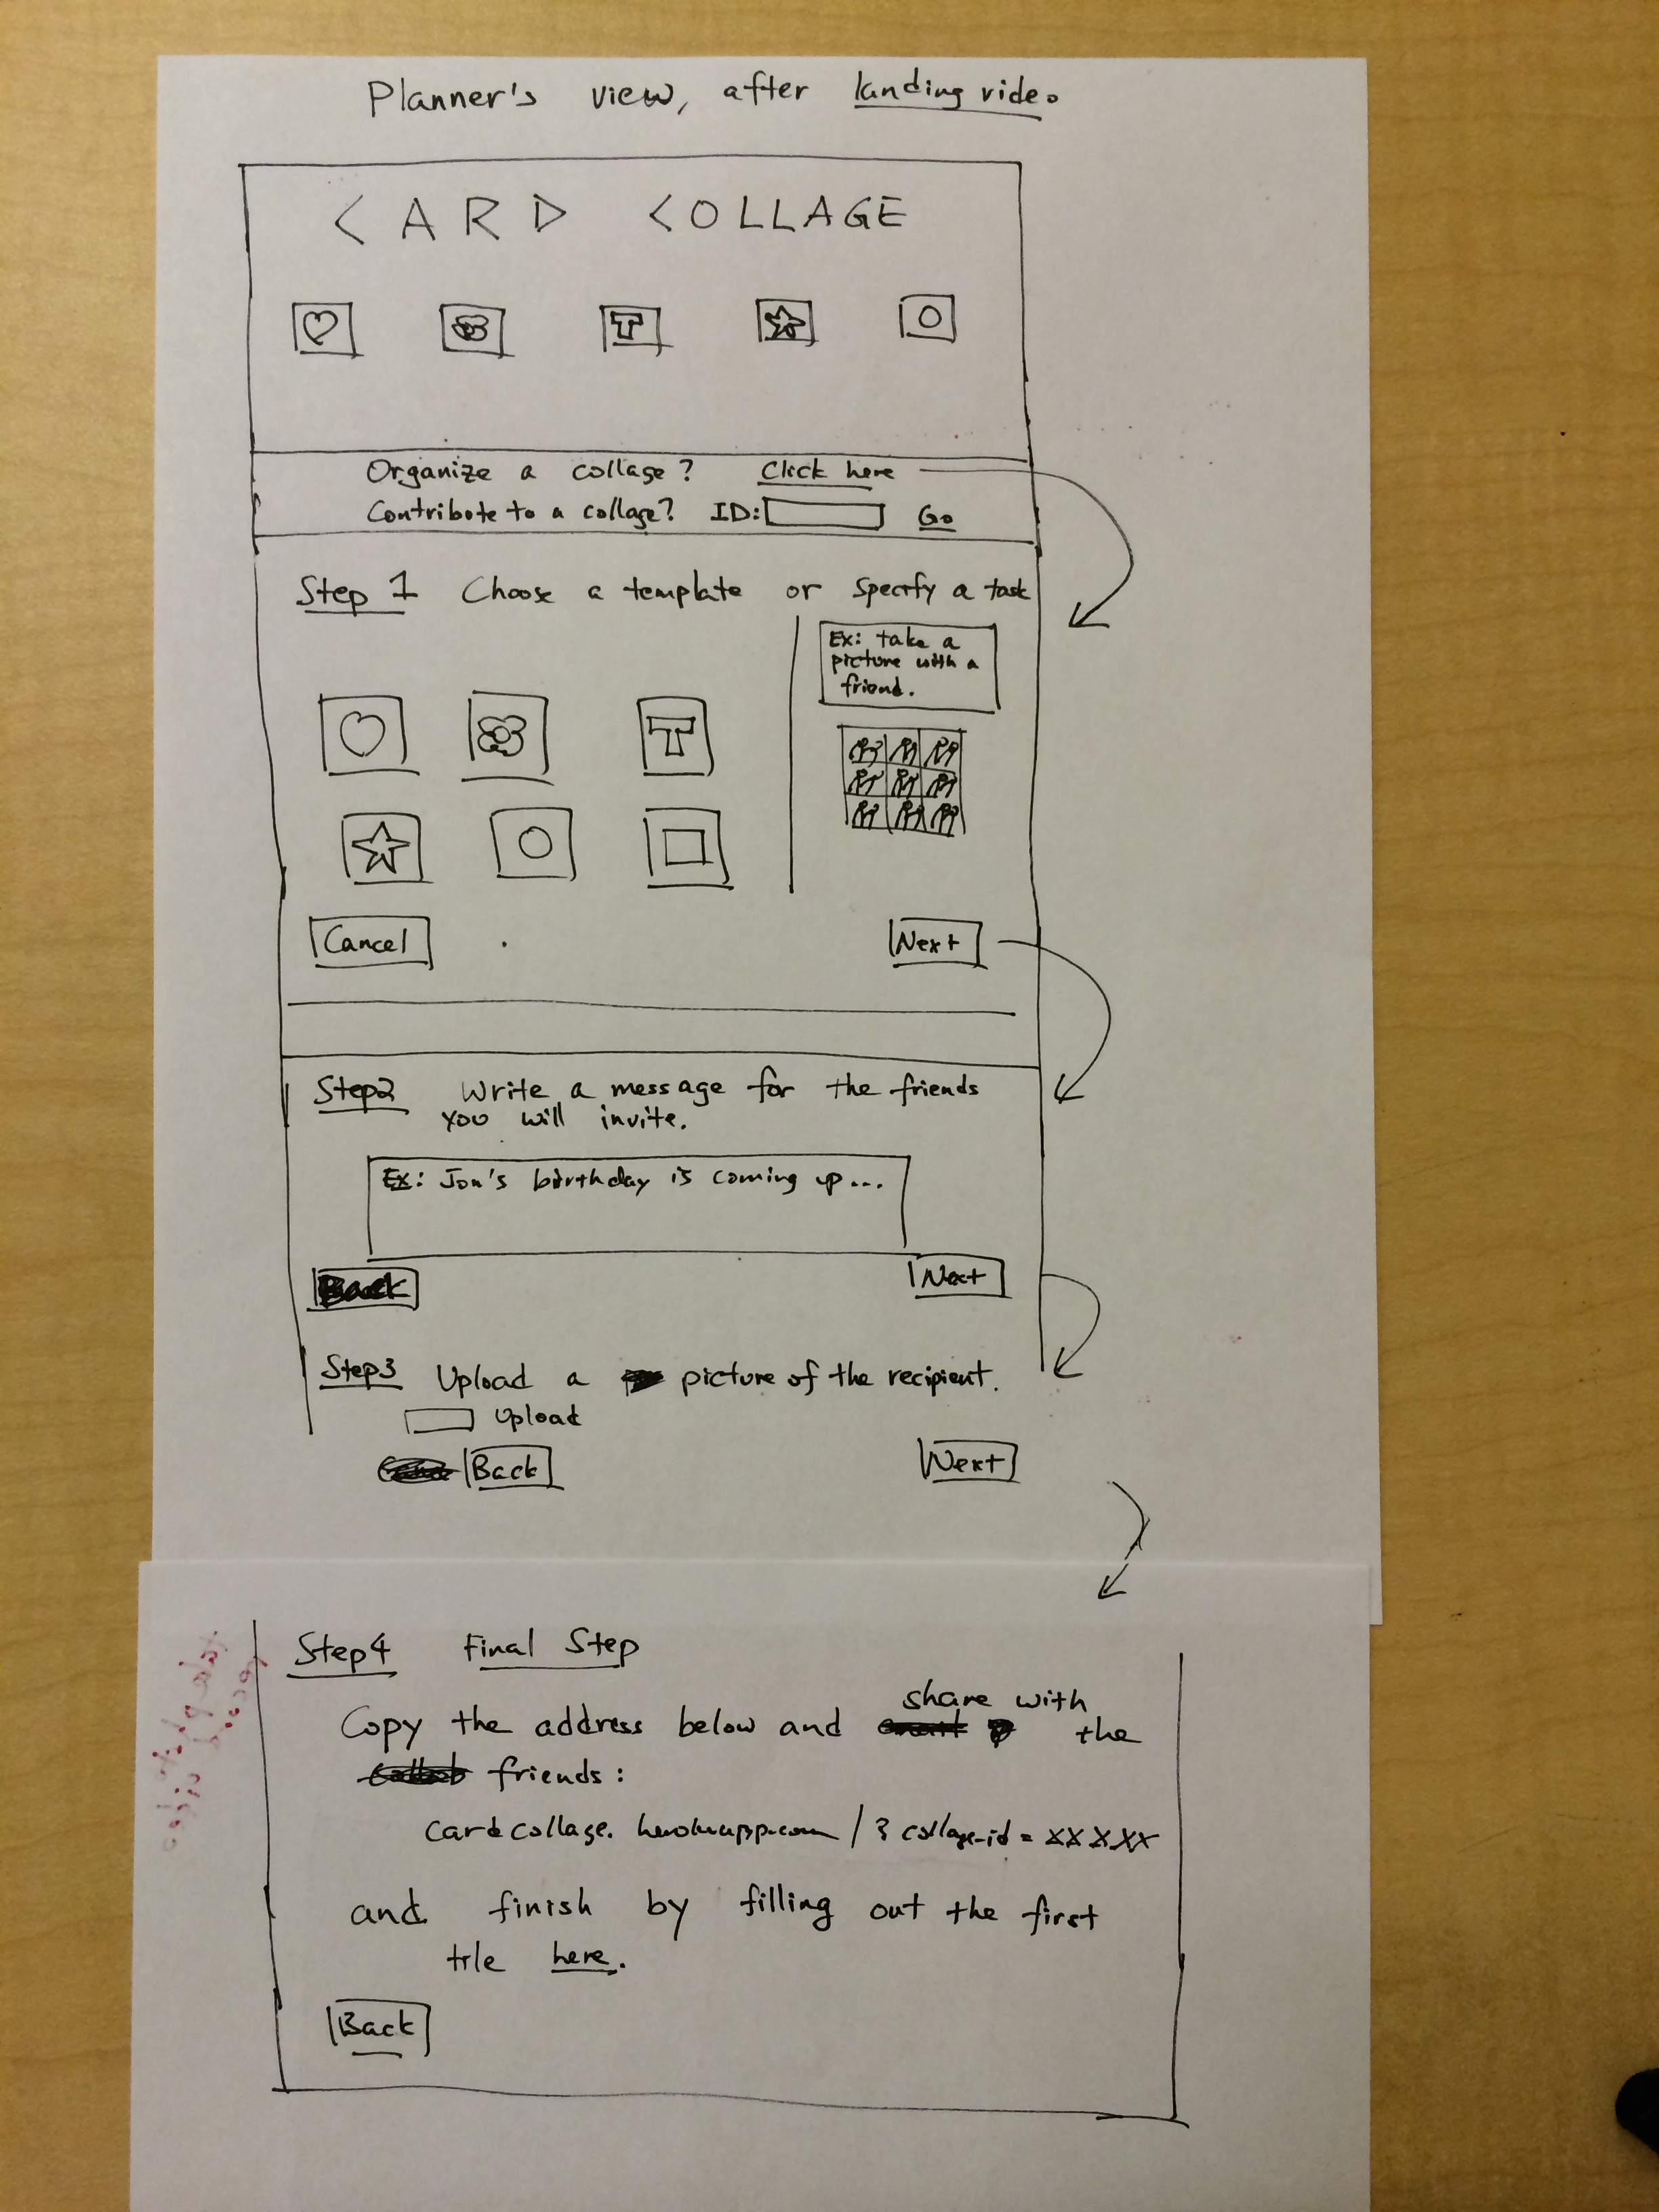 Planner's view, after landing video
CARD COLLAGE
T
Organize a collage? Click here
Contribute to a collage? ID: Go
Step 1 Choose a template or specify a task
Ex: take a
picture with a
friend.
T
Cancel Next
Step2 Write a message for the friends
you will invite.
Ex: Jon's birthday is coming up...
Back Next
Step3 Upload a picture of the recipient.
Upload
Back Next
Step4 Final Step
share with
Copy the address below and the
friends:
cardcollage.herokuapp.com/?collage-id=XXXXX
and finish by filling out the first
tile here.
Back